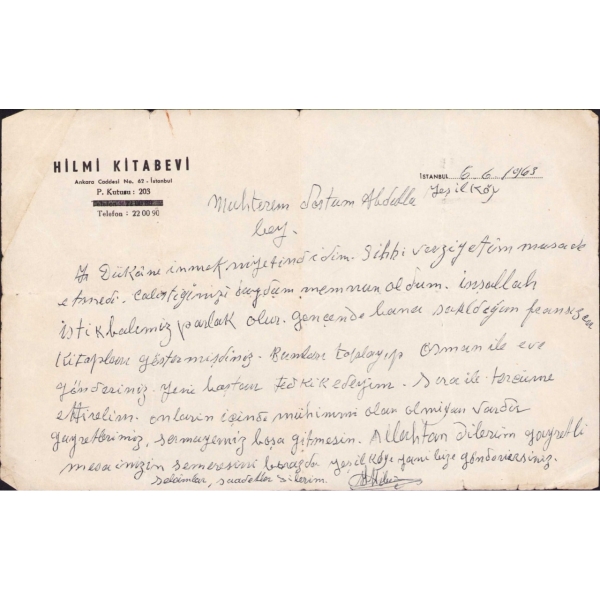 HİLMİ KİTABEVİ
Ankara Caddesi No. 62 - İstanbul
P. Kutusu : 203
Telefon : 22 00 90
İSTANBUL 6. 6. 1963
Yeşilköy
Muhterem Dostum Abdulla
bey.
Dükâna inmek niyetind idim. Sihhi vaziyetim musade
etmedi. calıştiğinizi duydum memnun oldum. inşallah
istikbalimiz parlak olur. gencende bana sakldoğım fransızca
Kitapları göstermişdiniz. Bunları toplayıp Osman ile eve
gönderiniz. yeni baştan Tedkik edeyim. Sıra ile tercüme
ettirelim. onların içinde mühimmi olan olmiyan vardır
gayretlerimiz, sermayemiz boşa gitmesin. Allahtan dilerim gayretli
mesainizin semeresini yeşilköye yani bize gönderirsiniz.
selâmlar, saadetler dilerim.